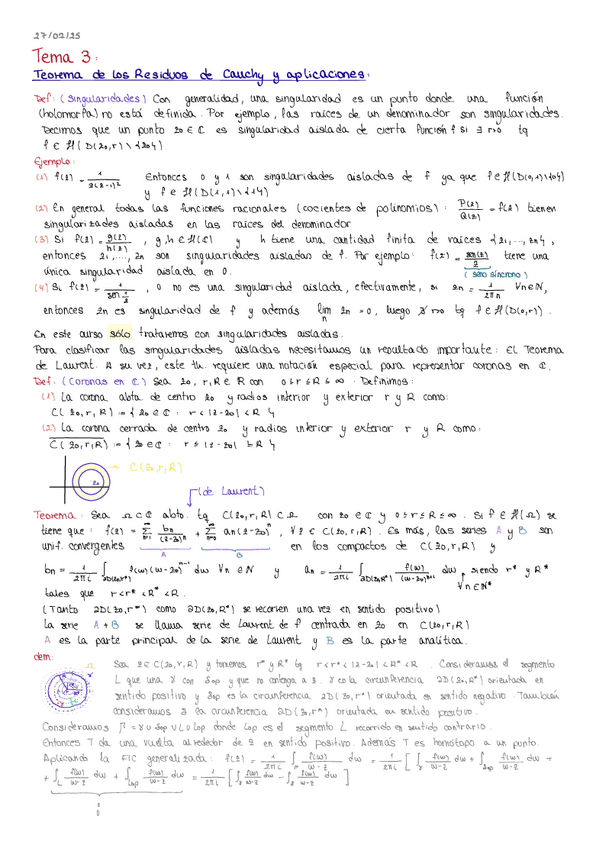 27/02/25
Tema 3:
Teorema de los Residuos de Cauchy y aplicaciones:
Def: (Singularidades) Con generalidad, una singularidad es un punto donde una función
(holomorfa) no está definida. Por ejemplo, las raíces de un denominador son singularidades.
Decimos que un punto z₀ ∈ ℂ es singularidad aislada de cierta función f si ∃ r>0 tq
f ∈ H(D(z₀,r)\{z₀})
Ejemplo:
(1) f(z) = 1/z(z-1)² Entonces 0 y 1 son singularidades aisladas de f ya que f ∈ H(D(0,1)\{0})
y f ∈ H(D(1,1)\{1})
(2) En general todas las funciones racionales (cocientes de polinomios): P(z)/Q(z) = f(z) tienen
singularidades aisladas en las raíces del denominador
(3) Si f(z) = g(z)/h(z), g,h ∈ H(ℂ) y h tiene una cantidad finita de raíces {z₁,...,zn},
entonces z₁,...,zn son singularidades aisladas de f. Por ejemplo: f(z) = sen(z)/z tiene una
única singularidad aislada en 0. (seno síncrono)
(4) Si f(z) = 1/sen 1/z, 0 no es una singularidad aislada, efectivamente, si zn = 1/2πn ∀n∈ℕ,
entonces zn es singularidad de f y además lim zn = 0, luego ∄ r>0 tq f ∈ H(D(0,r)).
En este curso sólo trataremos con singularidades aisladas.
Para clasificar las singularidades aisladas necesitamos un resultado importante: El Teorema
de Laurent. A su vez, este th. requiere una notación especial para representar coronas en ℂ.
Def: (Coronas en ℂ) Sea z₀, r,R ∈ ℝ con 0≤r≤R≤∞. Definimos:
(1) La corona abta de centro z₀ y radios interior y exterior r y R como:
C(z₀,r,R) := {z∈ℂ : r<|z-z₀|<R}
(2) La corona cerrada de centro z₀ y radios interior y exterior r y R como:
C(z₀,r,R) := {z∈ℂ : r≤|z-z₀|≤R}
C(z₀,r,R)
z₀
(de Laurent)
Teorema: Sea Ω⊂ℂ abto. tq C(z₀,r,R)⊂Ω con z₀∈ℂ y 0≤r≤R≤∞. Si f∈H(Ω) se
tiene que: f(z) = ∑ bn/(z-z₀)ⁿ + ∑ an(z-z₀)ⁿ, ∀z∈C(z₀,r,R). Es más, las series A y B son
unif. convergentes A B en los compactos de C(z₀,r,R) y
bn = 1/2πi ∫ f(w)(w-z₀)ⁿ⁻¹ dw ∀n∈ℕ y an = 1/2πi ∫ f(w)/(w-z₀)ⁿ⁺¹ dw, siendo r* y R*
tales que r<r*<R*<R. ∀n∈ℕ*
(Tanto ∂D(z₀,r*) como ∂D(z₀,R*) se recorren una vez en sentido positivo)
La serie A+B se llama serie de Laurent de f centrada en z₀ en C(z₀,r,R)
A es la parte principal de la serie de Laurent y B es la parte analítica.
dem:
Sea z∈C(z₀,r,R) y tomemos r* y R* tq r<r*<|z-z₀|<R*<R. Consideramos el segmento
L que una γ con y que no contenga a z. γ es la circunferencia ∂D(z₀,R*) orientada en
sentido positivo y es la circunferencia ∂D(z₀,r*) orientada en sentido negativo. También
consideramos la circunferencia ∂D(z₀,r*) orientada en sentido positivo.
Consideramos Γ = γ ∪ ∪ L ∪ Lop donde Lop es el segmento L recorrido en sentido contrario.
Entonces Γ da una vuelta alrededor de z en sentido positivo. Además Γ es homótopa a un punto.
Aplicando la FIC generalizada: f(z) = 1/2πi ∫ f(w)/w-z dw = 1/2πi [∫ f(w)/w-z dw + ∫ f(w)/w-z dw +
+ ∫ f(w)/w-z dw + ∫ f(w)/w-z dw] = 1/2πi [∫ f(w)/w-z dw - ∫ f(w)/w-z dw]
0